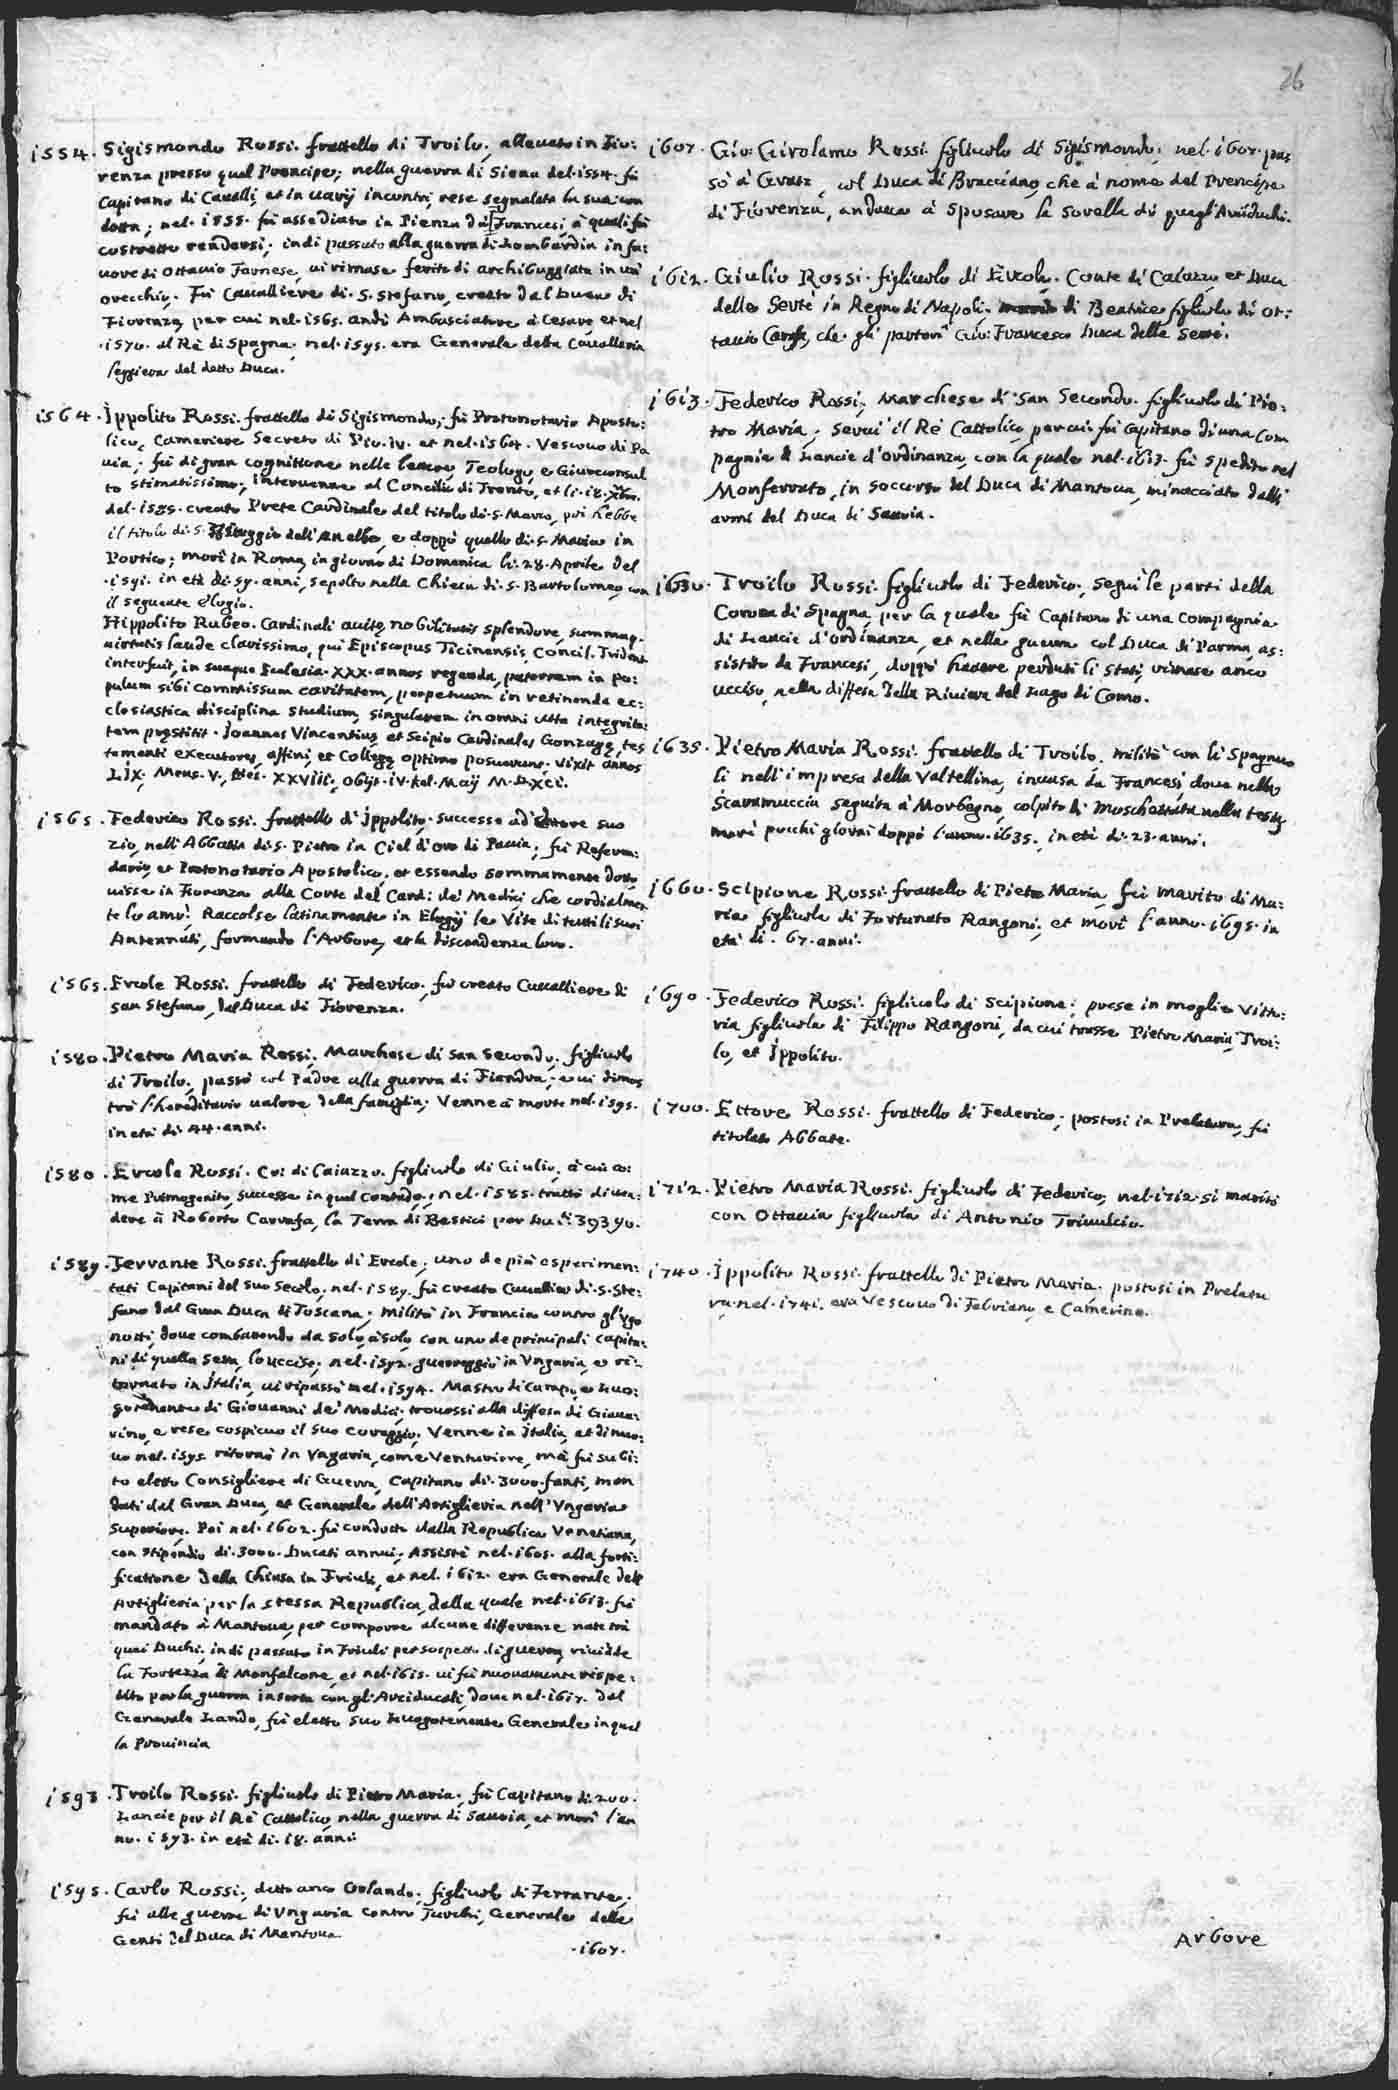 26
1554. Sigismondo Rossi. frattello di Troilo, allevato in Fio:
renza presso quel Prencipe; nella guerra di Siena del .1554. fù
Capitano di Cavalli, et in varij incontri, rese segnalata la sua con
dotta; nel .1555. fù assediato in Pienza da Francesi, à quali fù
costretto rendersi; indi passato alla guerra di Lombardia in fa:
vore di Ottavio Farnese, vi rimase ferito di archibuggiata in un
orecchio. Fù Cavalliere di .S. Stefano, creato dal Duca di
Fiorenza, per cui nel .1565. andò Ambasciatore à Cesare, et nel
.1570. al Rè di Spagna; nel .1595. era Generale della Cavalleria
leggiera del detto Duca.
1564. Ippolito Rossi. frattello di Sigismondo, fù Protonotario Aposto:
lico, Cameriere Secreto di Pio .IV. et nel .1564. Vescovo di Pa
via; fù di gran cognitione nelle lettere, Teologo, e Giureconsul
to stimatissimo; intervenne al Concilio di Trento, et li .18. Xbre.
del .1585. creato Prete Cardinale del titolo di .S. Marco, poi hebbe
il titolo di S. Biaggio dell'Anello, e doppò quello di .S. Maria in
Portico; morì in Roma, in giorno di Domenica li .28. Aprile del
.1591. in età di .59. anni, sepolto nella Chiesa di .S. Bartolomeo, con
il seguente elogio.
Hippolito Rubeo. Cardinali avitę nobilitatis splendore, summaq.
virtutis laude clarissimo, qui Episcopus Ticinensis, Concil. Trident.
interfuit, in suaque Ecclesia .XXX. annos regenda, paternam in po:
pulum sibi commissum caritatem, perpetuum in retinenda ec:
clesiastica disciplina studium, singularem in omni vita integrita:
tem pręstitit. Joannes Vincentius, et Scipio Cardinales Gonzagę, tes
tamenti executores, affini, et Collegę optimo posuerunt. Vixit annos
LIX. Mens. V. dies. XXVIII. Obijt .IV. kal. Maij M.D.XCI.
1565. Federico Rossi. frattello di Ippolito, successe ad Ettore suo
zio, nell'Abbatia di .S. Pietro in Ciel d'oro di Pavia; fù Referen:
dario, et Protonotario Apostolico; et essendo sommamente dotto
visse in Fiorenza alla Corte del Card: de' Medici che cordialmen
te lo amò. Raccolse latinamente in Elogij le Vite di tutti li suoi
Antennati, formando l'Arbore, et la discendenza loro.
1565. Ercole Rossi. frattello di Federico, fù creato Cavalliere di
san Stefano, dal Duca di Fiorenza.
1580. Pietro Maria Rossi. Marchese di san Secondo, figliuolo
di Troilo, passò col Padre alla guerra di Fiandra, e vi dimos
trò l'hereditario valore della famiglia; Venne à morte nel .1595.
in età di .44. anni.
1580. Ercole Rossi. Co: di Caiazzo. figliuolo di Giulio, à cui co:
me Primogenito, successe in quel Contado; nel .1585. trattò di ven:
dere à Roberto Carrafa, la Terra di Bestici per Duc.ti 39390.
1589. Ferrante Rossi. frattello di Ercole; uno de più esperimen:
tati Capitani del suo Secolo; nel .1589. fù creato Cavallier di .S. Ste:
fano dal Gran Duca di Toscana; militò in Francia contro gl'Ugo
notti, dove combattendo da solo, à solo, con uno de principali Capita:
ni di quella Setta, lo uccise; nel .1592. guerreggiò in Ungaria, e ri:
tornato in Italia, vi ripassò nel .1594. Mastro di Campo, e Luo:
gotenente di Giovanni de' Medici; trovossi alla diffesa di Giava:
rino, e rese cospicuo il suo Coraggio. Venne in Italia, et di nuo:
vo nel .1595. ritornò in Ungaria, come Venturiere, mà fù subi:
to eletto Consigliere di Guerra, Capitano di .3000. fanti, man
dati dal Gran Duca, et Generale dell'Artiglieria nell'Ungaria
superiore. Poi nel .1602. fù condotto dalla Republica Venetiana,
con stipendio di .3000. Ducati annui. Assistè nel .1605. alla forti:
ficatione della Chiusa in Friuli, et nel .1612. era Generale dell'
Artiglieria per la stessa Republica, dalla quale nel .1613. fù
mandato à Mantova, per comporre alcune differenze nate trà
quei Duchi; indi passato in Friuli per sospetto di guerra, rividde
la Fortezza di Monfalcone, et nel .1615. vi fù nuovamente rispe:
dito per la guerra insorta con gl'Arciducali, dove nel .1617. dal
Generale Lando, fù eletto suo Luogotenente Generale in quel
la Provincia
1593. Troilo Rossi. figliuolo di Pietro Maria, fù Capitano di .200.
Lancie per il Rè Cattolico, nella guerra di Savoia, et morì l'an
no .1593. in età di .18. anni.
1595. Carlo Rossi, detto anco Orlando, figliuolo di Ferrante,
fù alle guerre di Ungaria contro Turchi, Generale delle
Genti del Duca di Mantova
.1607.
1607. Gio: Girolamo Rossi. figliuolo di Sigismondo; nel .1607. pas
sò à Gratz, col Duca di Bracciano, che à nome del Prencipe
di Fiorenza, andava à sposare la sorella di quegl'Arciduchi.
1612. Giulio Rossi. figliuolo di Ercole. Conte di Caiazzo, et Duca
delle Serre in Regno di Napoli. di Beatrice figliuola di Ot:
tavio, che gli partorì Gio: Francesco Duca delle Serre.
1613. Federico Rossi, Marchese di San Secondo. figliuolo di Pie:
tro Maria; servì il Rè Cattolico, per cui fù Capitano di una Com
pagnia di Lancie d'ordinanza, con la quale nel .1613. fù spedito nel
Monferrato, in soccorso del Duca di Mantova, minacciato dalli
armi del Duca di Savoia.
1630. Troilo Rossi. figliuolo di Federico; seguì le parti della
Corona di Spagna, per la quale fù Capitano di una Compagnia
di Lancie d'ordinanza, et nella guerra col Duca di Parma, as:
sistito da Francesi, doppò havere perduti li stati, rimase anco
ucciso, nella diffesa della Riviera del Lago di Como.
1635. Pietro Maria Rossi. frattello di Troilo, militò con li Spagnuo
li nell'impresa della Valtellina, invasa da Francesi, dove nella
Scaramuccia seguita à Morbegno, colpito di moschettata nella testa,
morì pochi giorni doppò l'anno .1635. in età di .23. anni.
1660. Scipione Rossi. frattello di Pietro Maria, fù marito di Ma:
ria figliuola di Fortunato Rangoni; et morì l'anno .1695. in
età di .67. anni.
1690. Federico Rossi. figliuolo di Scipione; prese in moglie Vitto:
ria figliuola di Filippo Rangoni, da cui trasse Pietro Maria, Troi:
lo, et Ippolito.
1700. Ettore Rossi. frattello di Federico; postosi in Prelatura, fù
titolato Abbate.
1712. Pietro Maria Rossi. figliuolo di Federico, nel .1712. si maritò
con Ottavia figliuola di Antonio Trivulcio.
1740. Ippolito Rossi. frattello di Pietro Maria. postosi in Prelatu
ra. nel .1741. era Vescovo di Fabriano, e Camerino.
Arbore